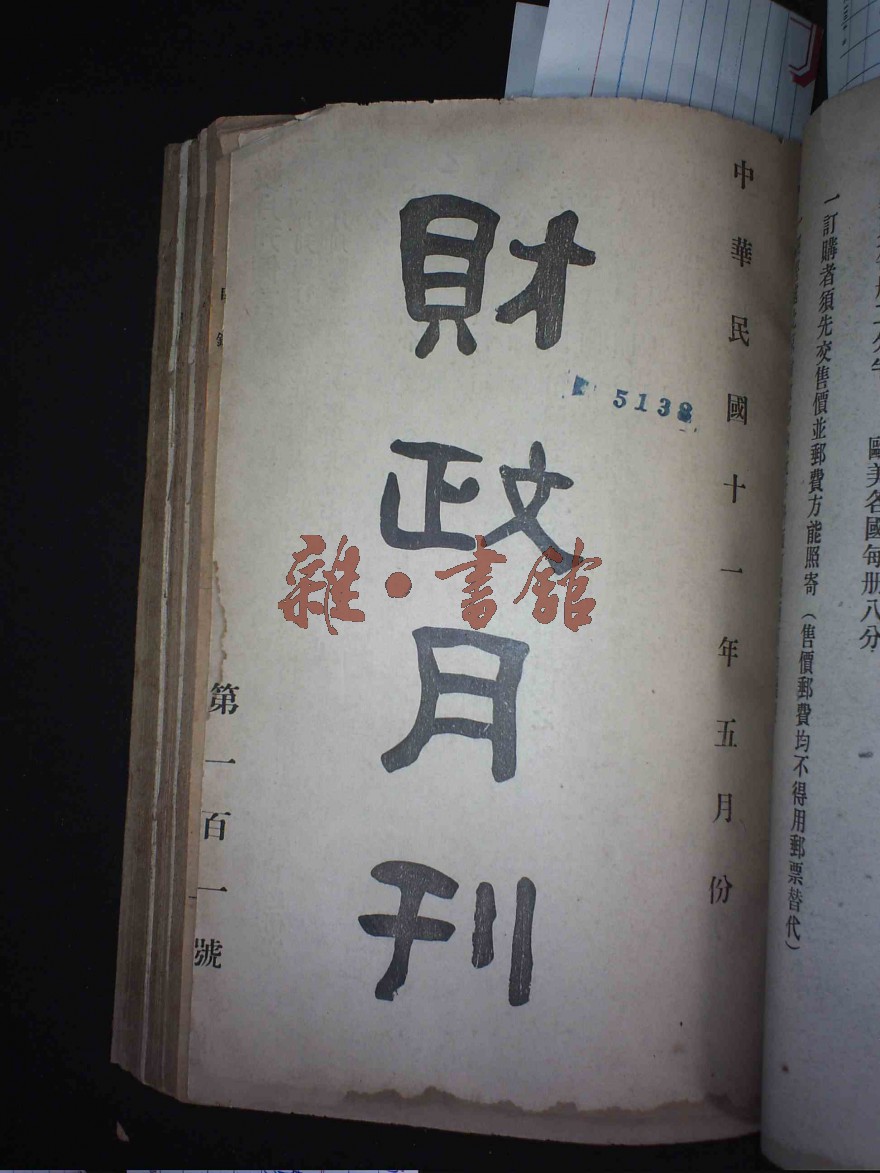 歐美各國每册八分
一訂購者須先交售價並郵費方能照寄（售價郵費均不得用郵票替代）
中華民國十一年五月份
5138
財政月刊
雜·書館
第一百一號